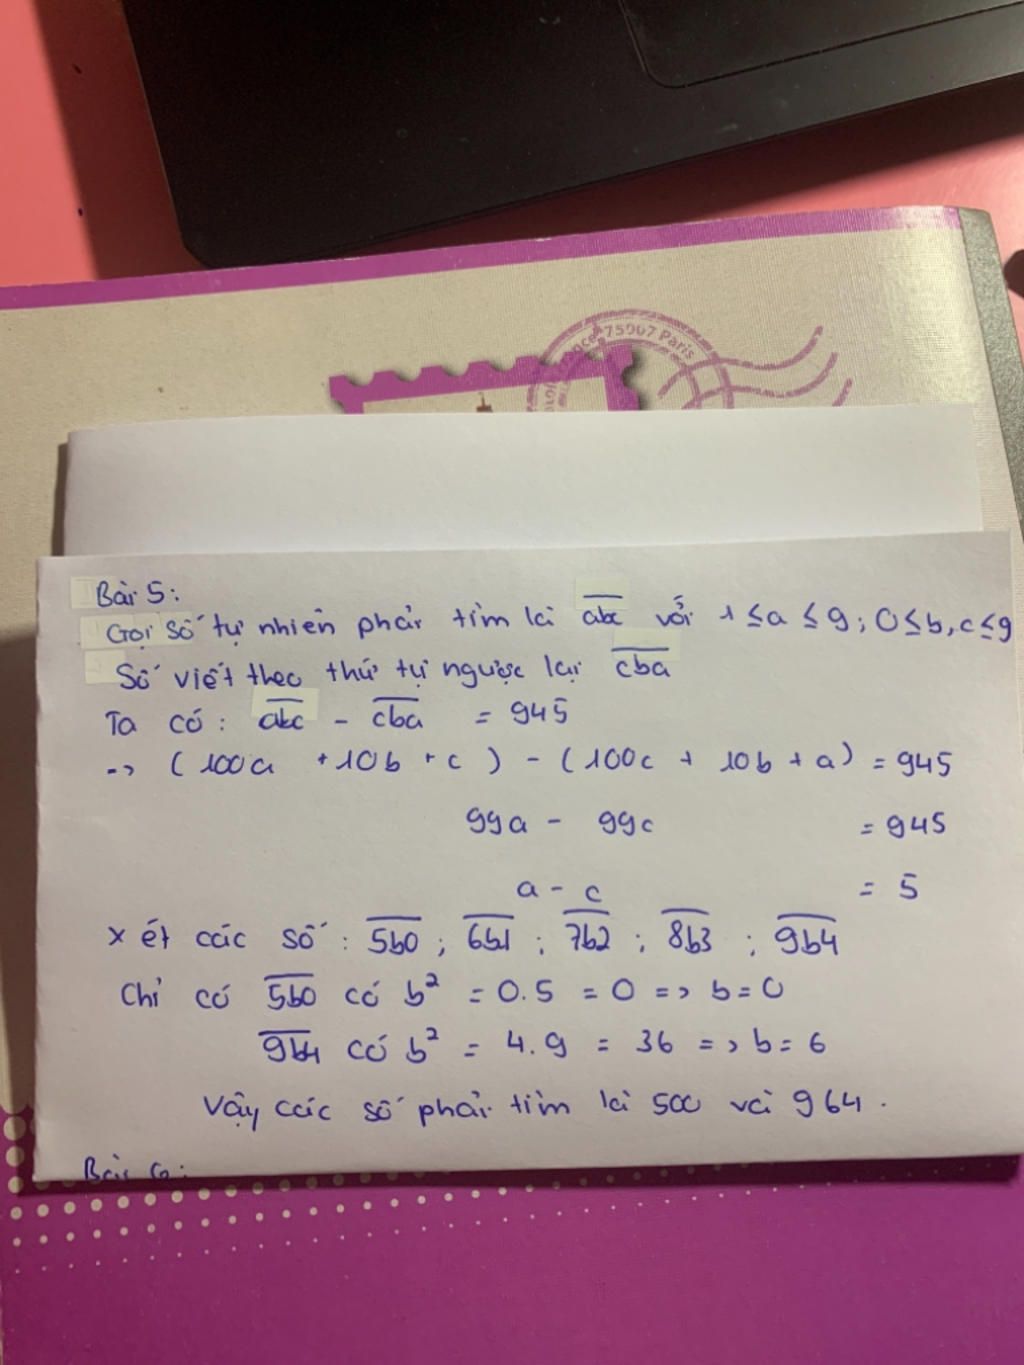 75007 Paris
Bài 5:
Gọi số tự nhiên phải tìm là abc với 1 ≤ a ≤ 9; 0 ≤ b, c ≤ 9
Số viết theo thứ tự ngược lại cba
Ta có: abc - cba = 945
-> (100a + 10b + c) - (100c + 10b + a) = 945
99a - 99c = 945
a - c = 5
Xét các số: 5b0; 6b1; 7b2; 8b3; 9b4
Chỉ có 5b0 có b² = 0.5 = 0 => b = 0
9b4 có b² = 4.9 = 36 => b = 6
Vậy các số phải tìm là 500 và 964.